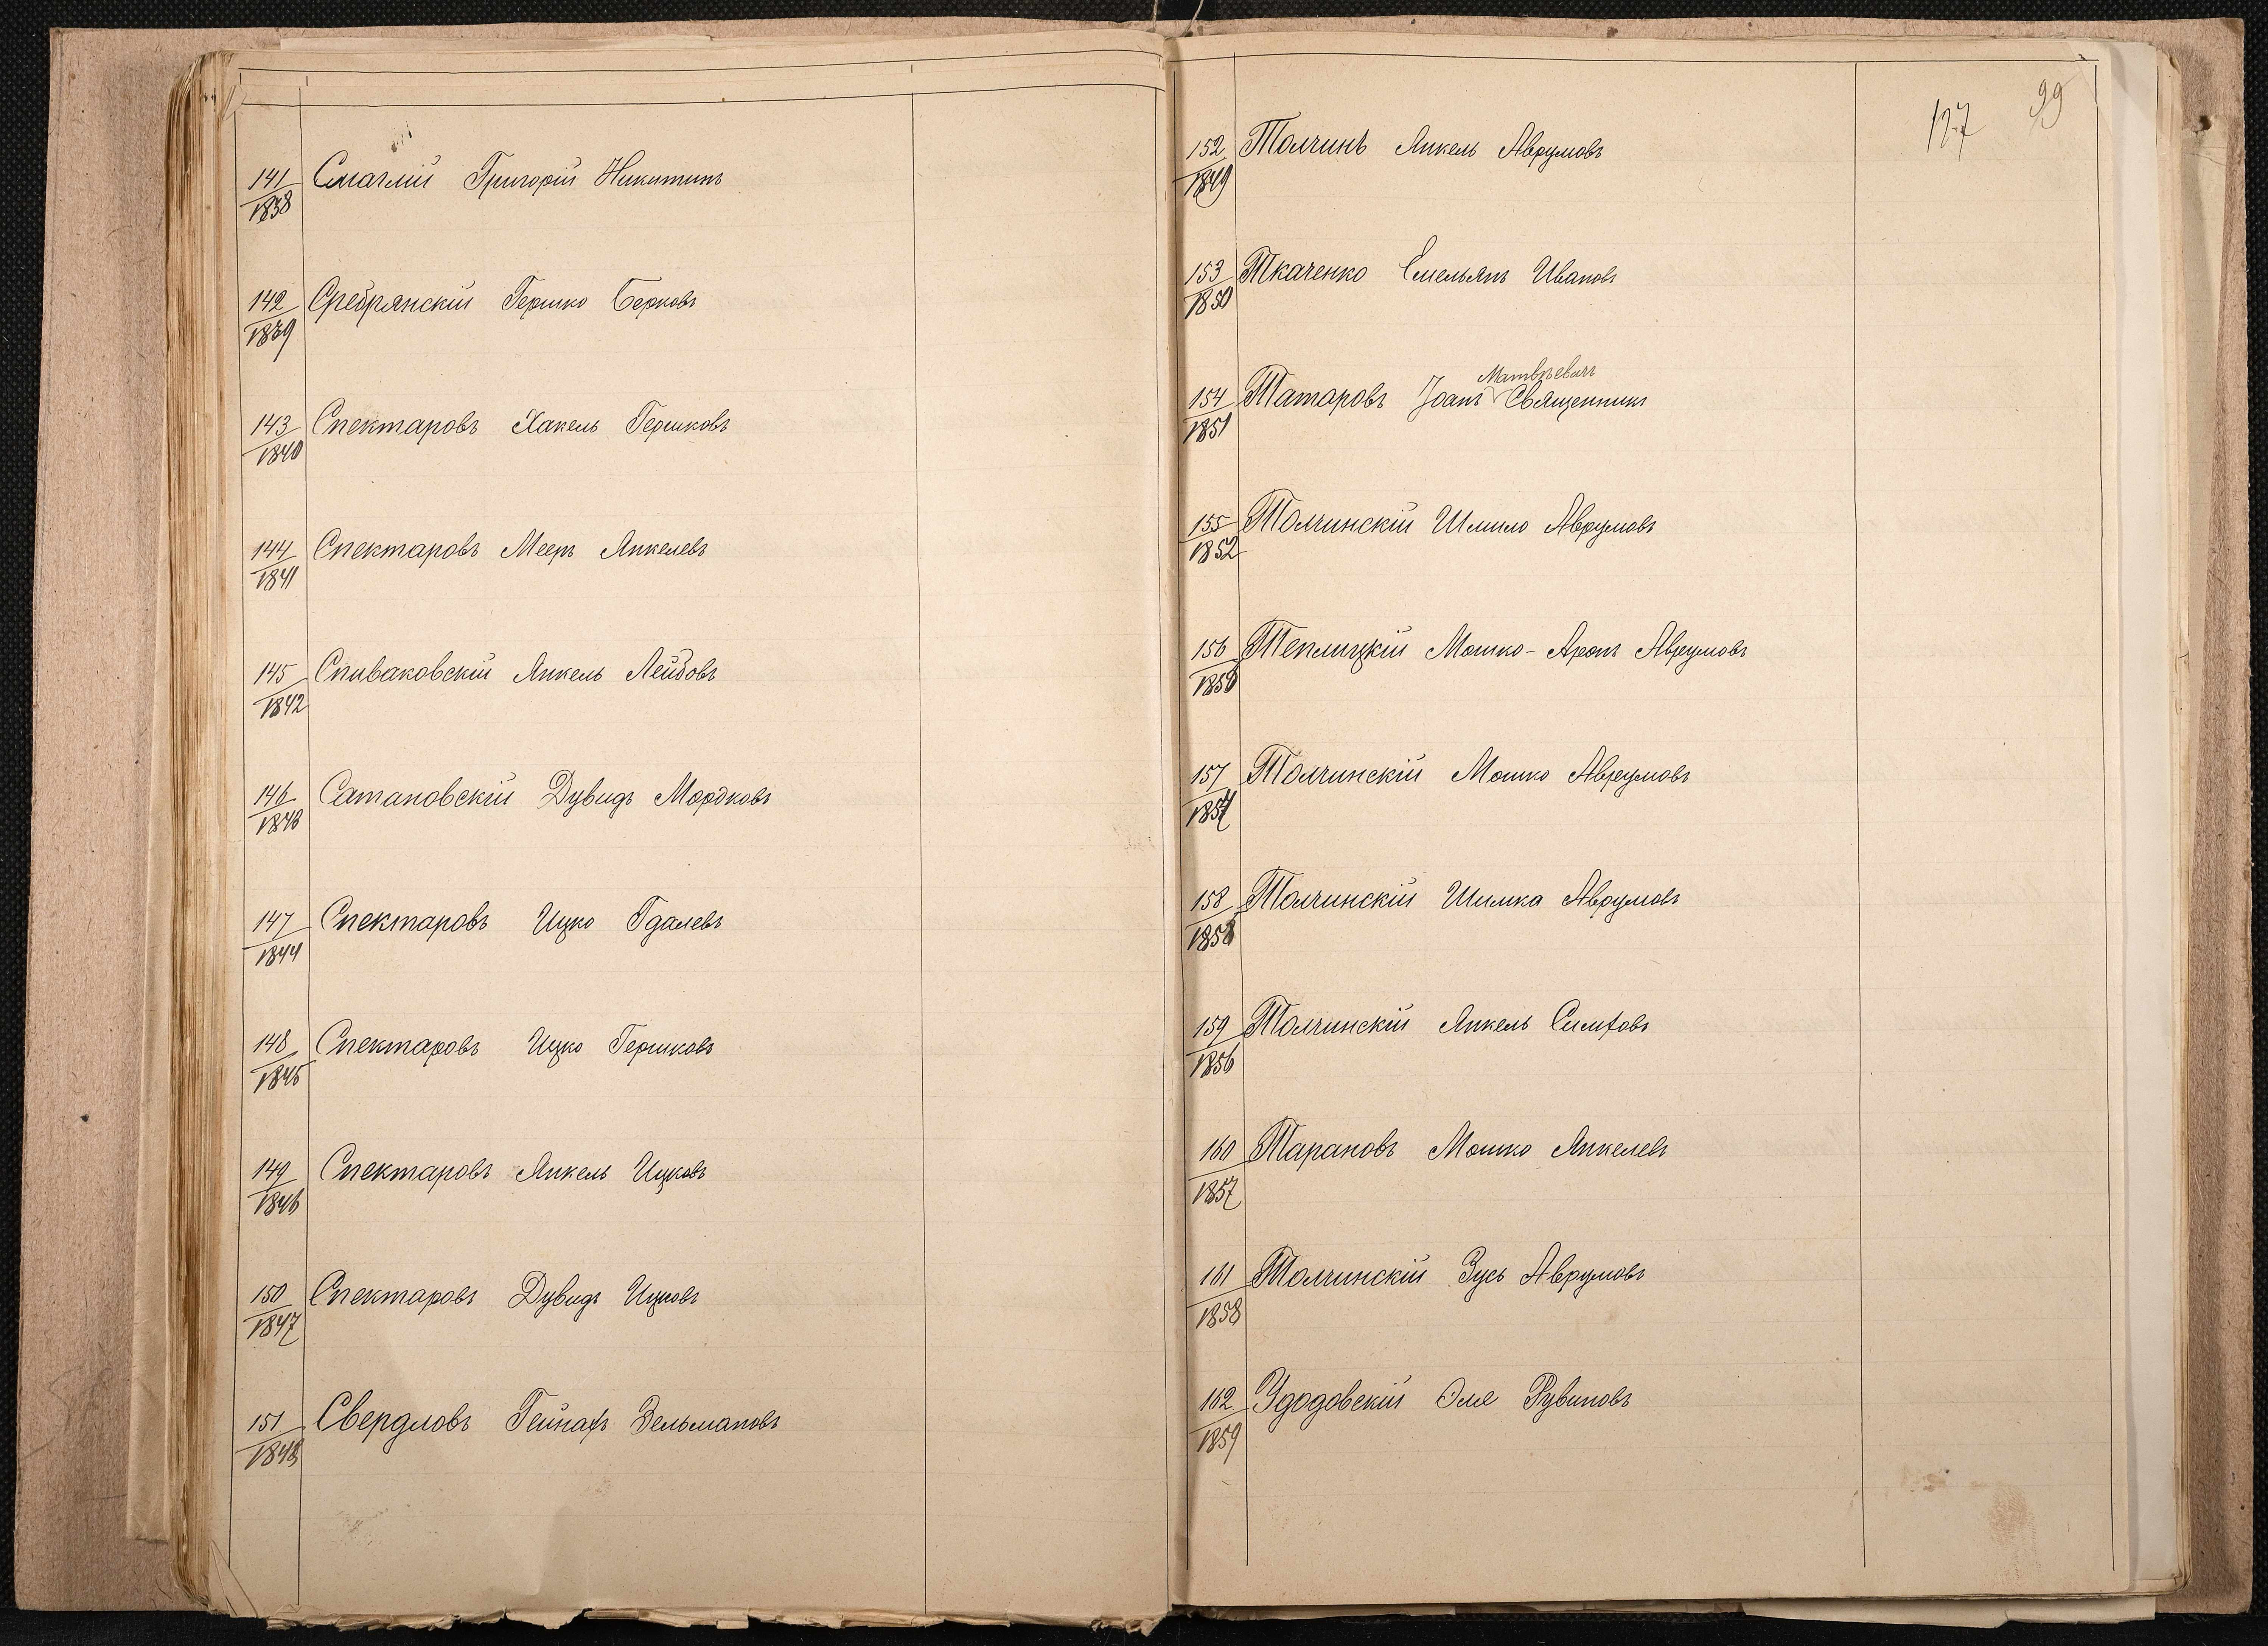 141/1838 Смаглій Григорій Никитинъ
142/1839 Сребрянскій Гершко Берковъ
143/1840 Спектаровъ Хакель Гершковъ
144/1841 Спектаровъ Мееръ Янкелевъ
145/1842 Спиваковскій Янкель Лейбовъ
146/1843 Сатановскій Дувидъ Мордковъ
147/1844 Спектаровъ Ицко Гдалевъ
148/1845 Спектаровъ Ицко Гершковъ
149/1846 Спектаровъ Янкель Ицковъ
150/1847 Спектаровъ Дувидъ Ицковъ
151/1848 Свердловъ Зельмановъ
127 99
152/1849 Толчинъ Янкель Аврумовъ
153/1850 Ткаченко Емельянъ Ивановъ
Матвѣевичъ
154/1851 Татаровъ Іоанъ Священникъ
155/1852 Толчинскій Шмило Аврумовъ
156/1853 Теплицкій Мошко-Аронъ Аврумовъ
157/1854 Толчинскій Мошко Аврумовъ
158/1855 Толчинскій Шимка Аврумовъ
159/1856 Толчинскій Янкель Симховъ
160/1857 Тарановъ Мошко Янкелевъ
161/1858 Толчинскій Зусь Аврумовъ
162/1859 Удодовскій Эля Рувиновъ